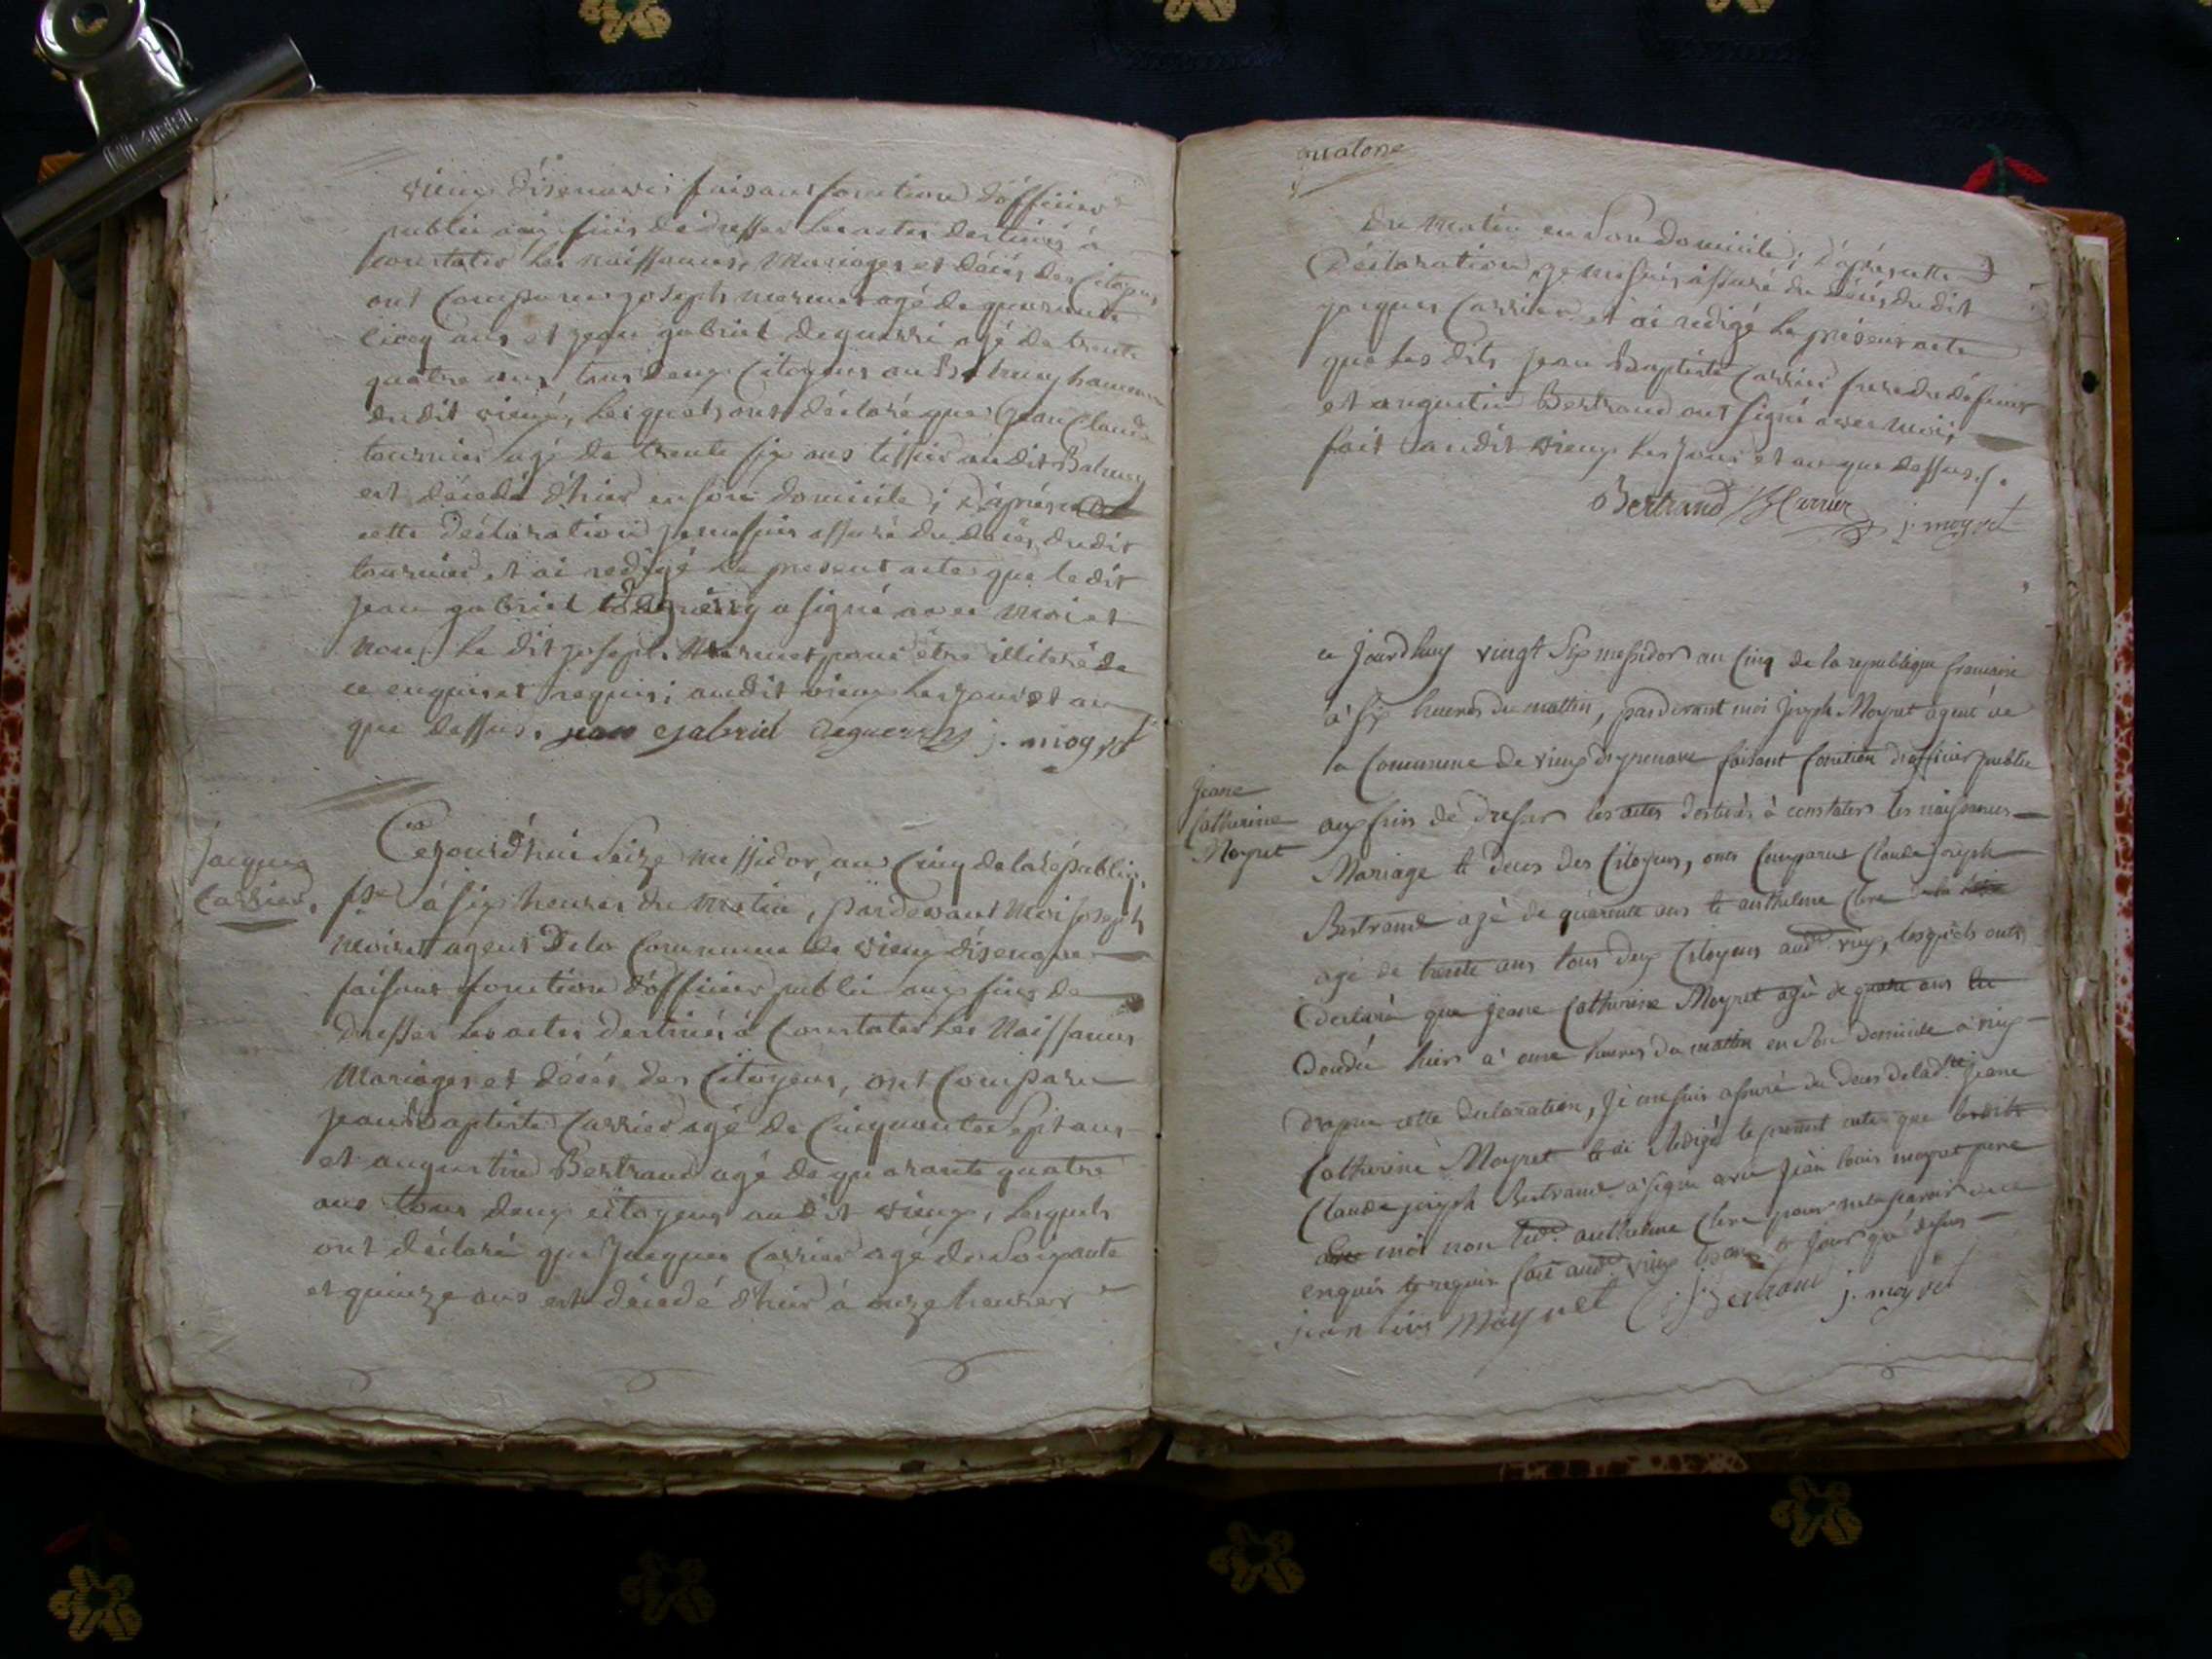 vieux d'isenave faisant fonction d'officier
public aux fins de dresser les actes destinés à
constater les naissances, Mariages et décés des Citoyens
ont Comparu joseph mermet agé de quarante
cinq ans et jean gabriel deguerri agé de trente
quatre ans, tous deux Citoyens au Balmay hameau
du dit vieux, lesquels ont déclaré que jean Claude
tournier agé de trente six ans tissier au dit Balmay
est décédé d'hier en son domicile ; d'après
cette déclaration je me suis assuré du décés du dit
tournier et ai redigé le present acte que le dit
jean gabriel deguerry a signé avec moi et
non le dit joseph Mermet pour être illiteré de
ce enquis et requis ; au dit vieux les jour et an
que dessus. jean gabriel deguerry j. moyret
jacques
Carrier.
Cejourd'hui Seize messidor, an Cinq de la républiq.
fse à six heures du matin, pardevant moi joseph
moiret agent de la Commune de vieux d'isenave
faisant fonction d'officier public aux fins de
dresser les actes destinés à Constater les Naissances
Mariages et décés des Citoyens, ont Comparu
jean Baptiste Carrier agé de Cinquante Sept ans
et augustin Bertrand agé de quarante quatre
ans tous deux citoyens au dit vieux, lesquels
ont déclaré que Jacques Carrier agé de Soixante
et quinze ans est décedé d'hier à onze heures
quatorze
du matin en Son domicile ; d'après cette
déclaration, je me suis assuré du décés du dit
jacques Carrier et ai redigé le présent acte
que les dits jean Baptiste Carrier frere du défunt
et augustin Bertrand ont signé avec moi,
fait au dit vieux les jour et an que dessus.
Bertrand JB Carrier j. moyret
ce jourdhuy vingt Six messidor an Cinq de la republique francaise
à six heures du mattin, pardevant moi Joseph Moyret agent de
la Commune de vieux dizenave faisant fonction d'officier public
Jeane
Catherine
Moyret
aux fins de dresser les actes destinés à constater les naissances
Mariage et deces des Citoyens, ont Comparus Claude Joseph
Bertrand agé de quarente ans et anthelme Clerc
agé de trente ans tous deux Citoyens aud. vieux, lesquels ont
declaré que Jeane Catherine Moyret agée de quatre ans est
decedée hiers à onze heures du mattin en son domicile à vieux
d'apres cette declaration, Je me suis assuré du deces de ladte Jeane
Catherine Moyret et ai Redigé le présent acte que lesdits
Claude joseph Bertrand a signé avec Jean louis moyret pere
moi non led. anthelme Clerc pour ne le savoir de ce
enquis et requis fait aud. vieux les an et jour que dessus
jean louis Moyret C j Bertrand j. moyret